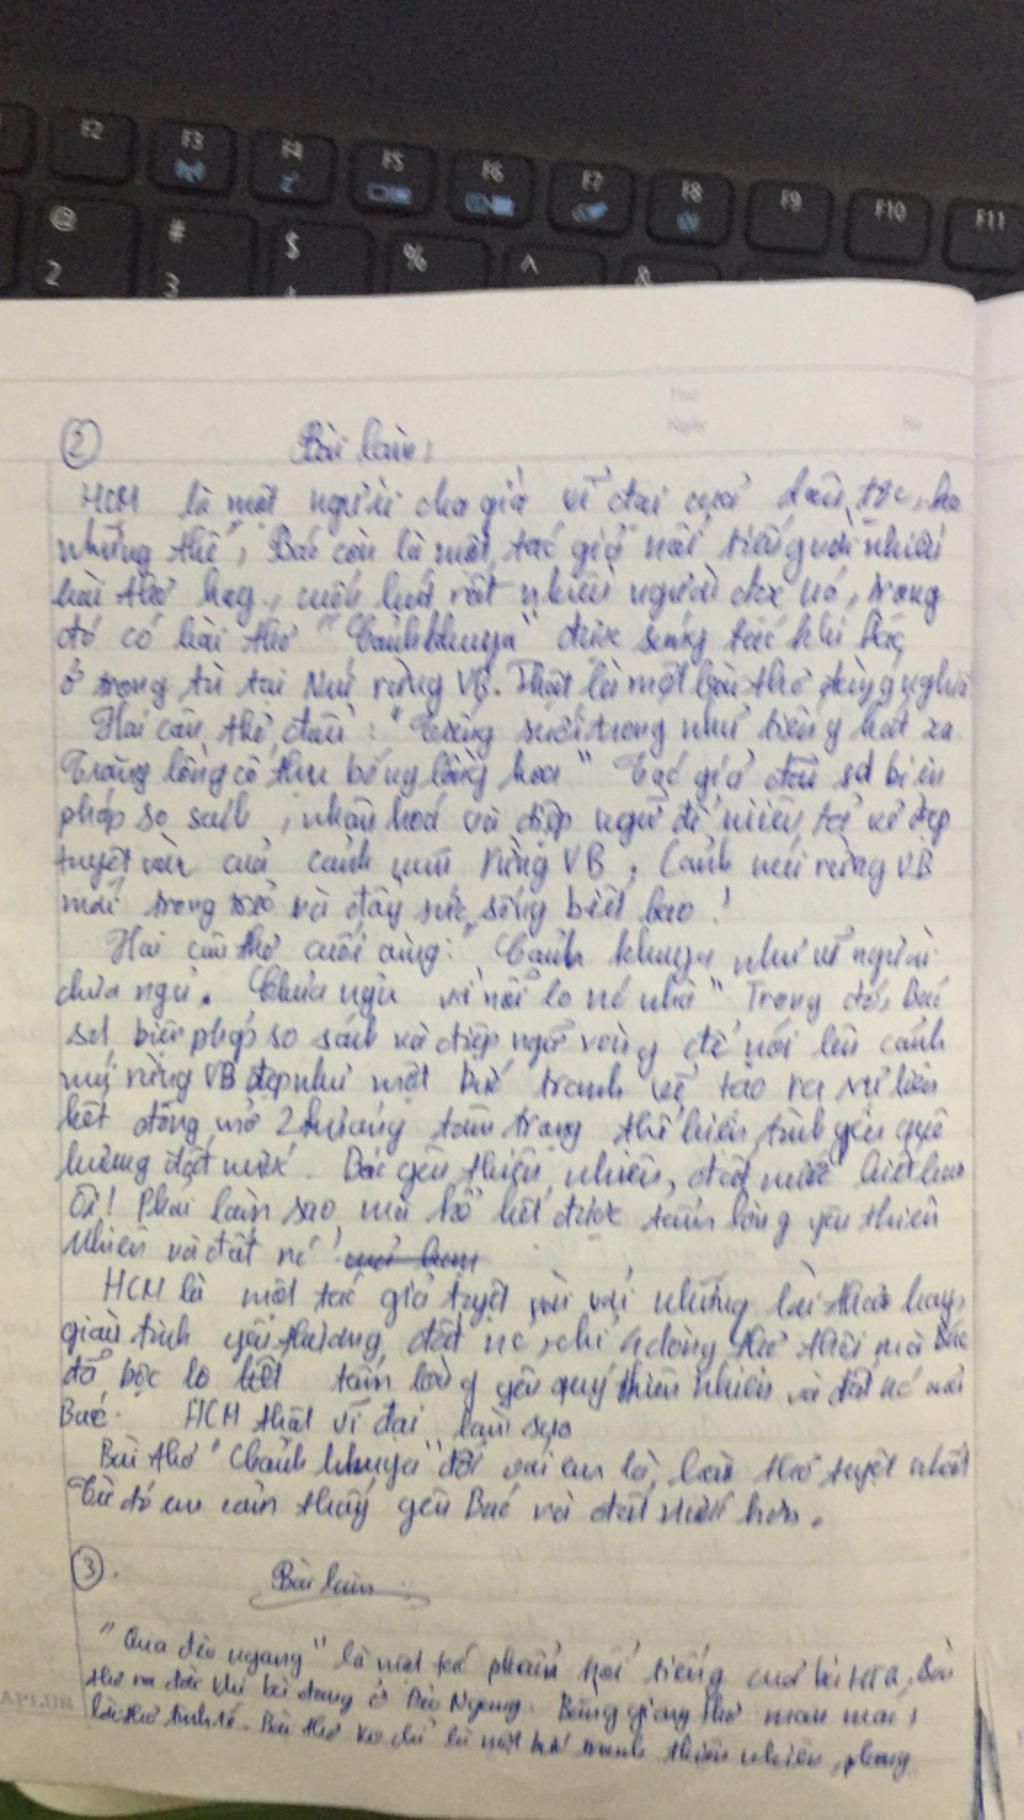 F2 F3 F4 F5 F6 F7 F8 F9 F10 F11
@ # $ % ^ &
2 3
② Bài làm:
HCM là một người cha già vĩ đại của dân tộc, ko
những thế, Bác còn là một tác giả nổi tiếng với nhiều
bài thơ hay, cuốn hút rất nhiều người đọc nó, trong
đó có bài thơ "Cảnh khuya" được sáng tác khi Bác
ở trong tù tại Núi rừng VB. Thật là một bài thơ đầy ý nghĩa
Hai câu thơ đầu: "Tiếng suối trong như tiếng hát xa
Trăng lồng cổ thụ bóng lồng hoa" Tác giả đã sd biện
pháp so sánh, nhân hoá và điệp ngữ để miêu tả vẻ đẹp
tuyệt vời của cảnh núi rừng VB. Cảnh núi rừng VB
mới trong trẻo và đầy sức sống biết bao!
Hai câu thơ cuối cùng: "Cảnh khuya như vẽ người
chưa ngủ. Chưa ngủ vì nỗi lo nc nhà" Trong đó, Bác
sd biện pháp so sánh và điệp ngữ vòng để nói lên cảnh
núi rừng VB đẹp như một bức tranh vẽ tạo ra sự liên
kết đồng mở 2 tâm trạng thể hiện tình yêu quê
hương đất nước. Bác yêu thiên nhiên, đất nước biết bao
Ôi! Phải làm sao mà kể hết được tấm lòng yêu thiên
nhiên và đất nc!
HCM là một tác giả tuyệt vời với những bài thơ hay,
giàu tình yêu thương đất nc, chỉ 4 dòng thơ thôi mà Bác
đã bộc lộ hết tấm lòng yêu quý thiên nhiên và đất nc của
Bác. HCM thật vĩ đại làm sao
Bài thơ "Cảnh khuya" đối với em là bài thơ tuyệt nhất
Từ đó em cảm thấy yêu Bác và đất nước hơn.
③. Bài làm
"Qua đèo ngang" là một tác phẩm nổi tiếng của bà HTQ, Bài
thơ ra đời khi bà đang ở Đèo Ngang. Bằng giọng thơ man mác,
lời thơ tinh tế. Bài thơ ko chỉ là một bức tranh thiên nhiên, phong
APLUS
Ngày